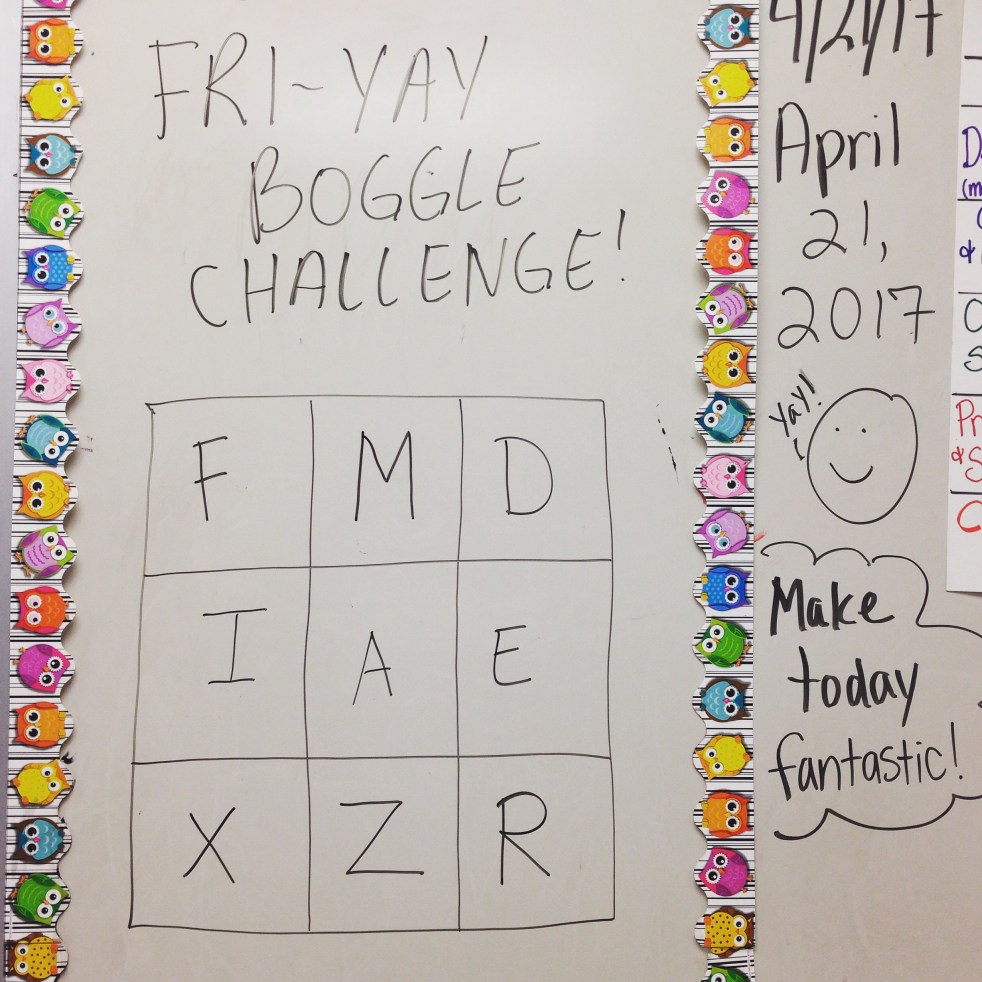 FRI-YAY
BOGGLE
CHALLENGE!
F M D
I A E
X Z R
4/21/17
April
21,
2017
Yay!
Make
today
fantastic!
D
(m
&
O
S
Pr
& S
C